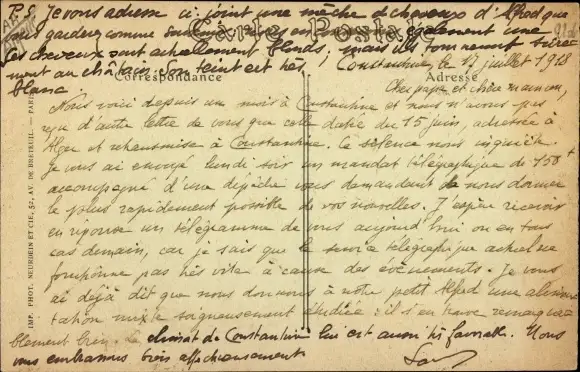 P.S. Je vous adresse ci-joint une mèche de cheveux d'Alfred que
vous garderez comme également une
Carte Postale
Ses cheveux sont actuellement blonds, mais ils tourneront
ment au châtain. Son teint est très
blanc
Constantine, le 17 juillet 1918
Correspondance
Adresse
Cher papa et chère maman,
Nous voici depuis un mois à Constantine et nous n'avons pas
reçu d'autre lettre de vous que celle datée du 15 juin, adressée à
Alger et retransmise à Constantine. Ce silence nous inquiète.
Je vous ai envoyé lundi soir un mandat télégraphique de 150
accompagné d'une dépêche vous demandant de nous donner
le plus rapidement possible de vos nouvelles. J'espère recevoir
en réponse un télégramme de vous aujourd'hui ou en tous
cas demain, car je sais que le service télégraphique actuel ne
fonctionne pas très vite à cause des événements. Je vous
ai déjà dit que nous donnons à notre petit Alfred une alimen-
tation mixte soigneusement étudiée : il s'en trouve remarqua-
blement bien. Le climat de Constantine lui est aussi très favorable. Nous
vous embrassons bien affectueusement
IMP. PHOT. NEURDEIN ET CIE, 52, AV. DE BRETEUIL - PARIS